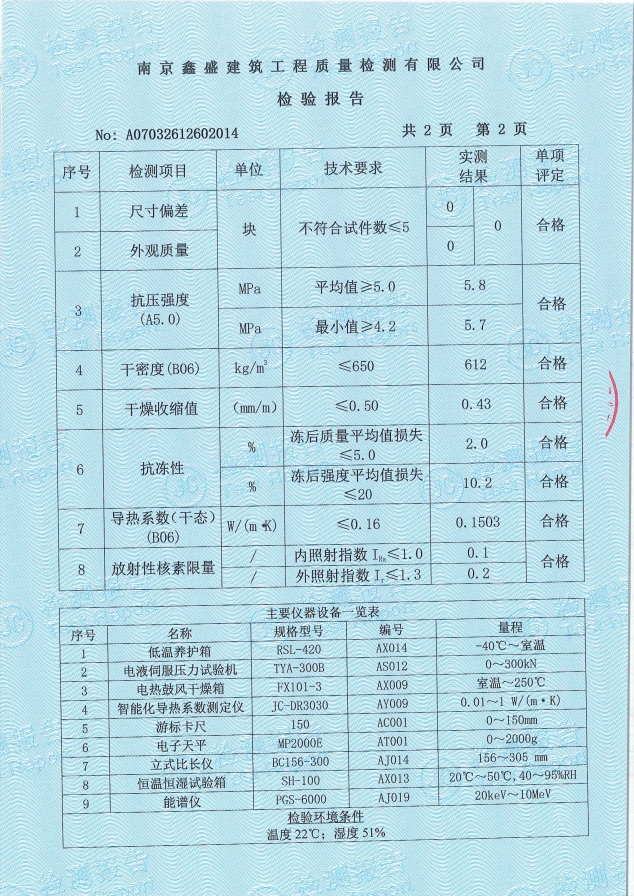 南京鑫盛建筑工程质量检测有限公司
检验报告
No: A07032612602014 共 2 页 第 2 页
序号 检测项目 单位 技术要求 实测结果 单项评定
1 尺寸偏差 块 不符合试件数≤5 0 0 合格
2 外观质量 0
3 抗压强度(A5.0) MPa 平均值≥5.0 5.8 合格
MPa 最小值≥4.2 5.7
4 干密度(B06) kg/m³ ≤650 612 合格
5 干燥收缩值 (mm/m) ≤0.50 0.43 合格
6 抗冻性 % 冻后质量平均值损失≤5.0 2.0 合格
% 冻后强度平均值损失≤20 10.2 合格
7 导热系数(干态)(B06) W/(m·K) ≤0.16 0.1503 合格
8 放射性核素限量 / 内照射指数 IRa≤1.0 0.1 合格
/ 外照射指数 Ir≤1.3 0.2
主要仪器设备一览表
序号 名称 规格型号 编号 量程
1 低温养护箱 RSL-420 AX014 -40℃～室温
2 电液伺服压力试验机 TYA-300B AS012 0～300kN
3 电热鼓风干燥箱 FX101-3 AX009 室温～250℃
4 智能化导热系数测定仪 JC-DR3030 AY009 0.01～1 W/(m·K)
5 游标卡尺 150 AC001 0～150mm
6 电子天平 MP2000E AT001 0～2000g
7 立式比长仪 BC156-300 AJ014 156～305 mm
8 恒温恒湿试验箱 SH-100 AX013 20℃～50℃,40～95%RH
9 能谱仪 PGS-6000 AJ019 20keV～10MeV
检验环境条件
温度 22℃；湿度 51%